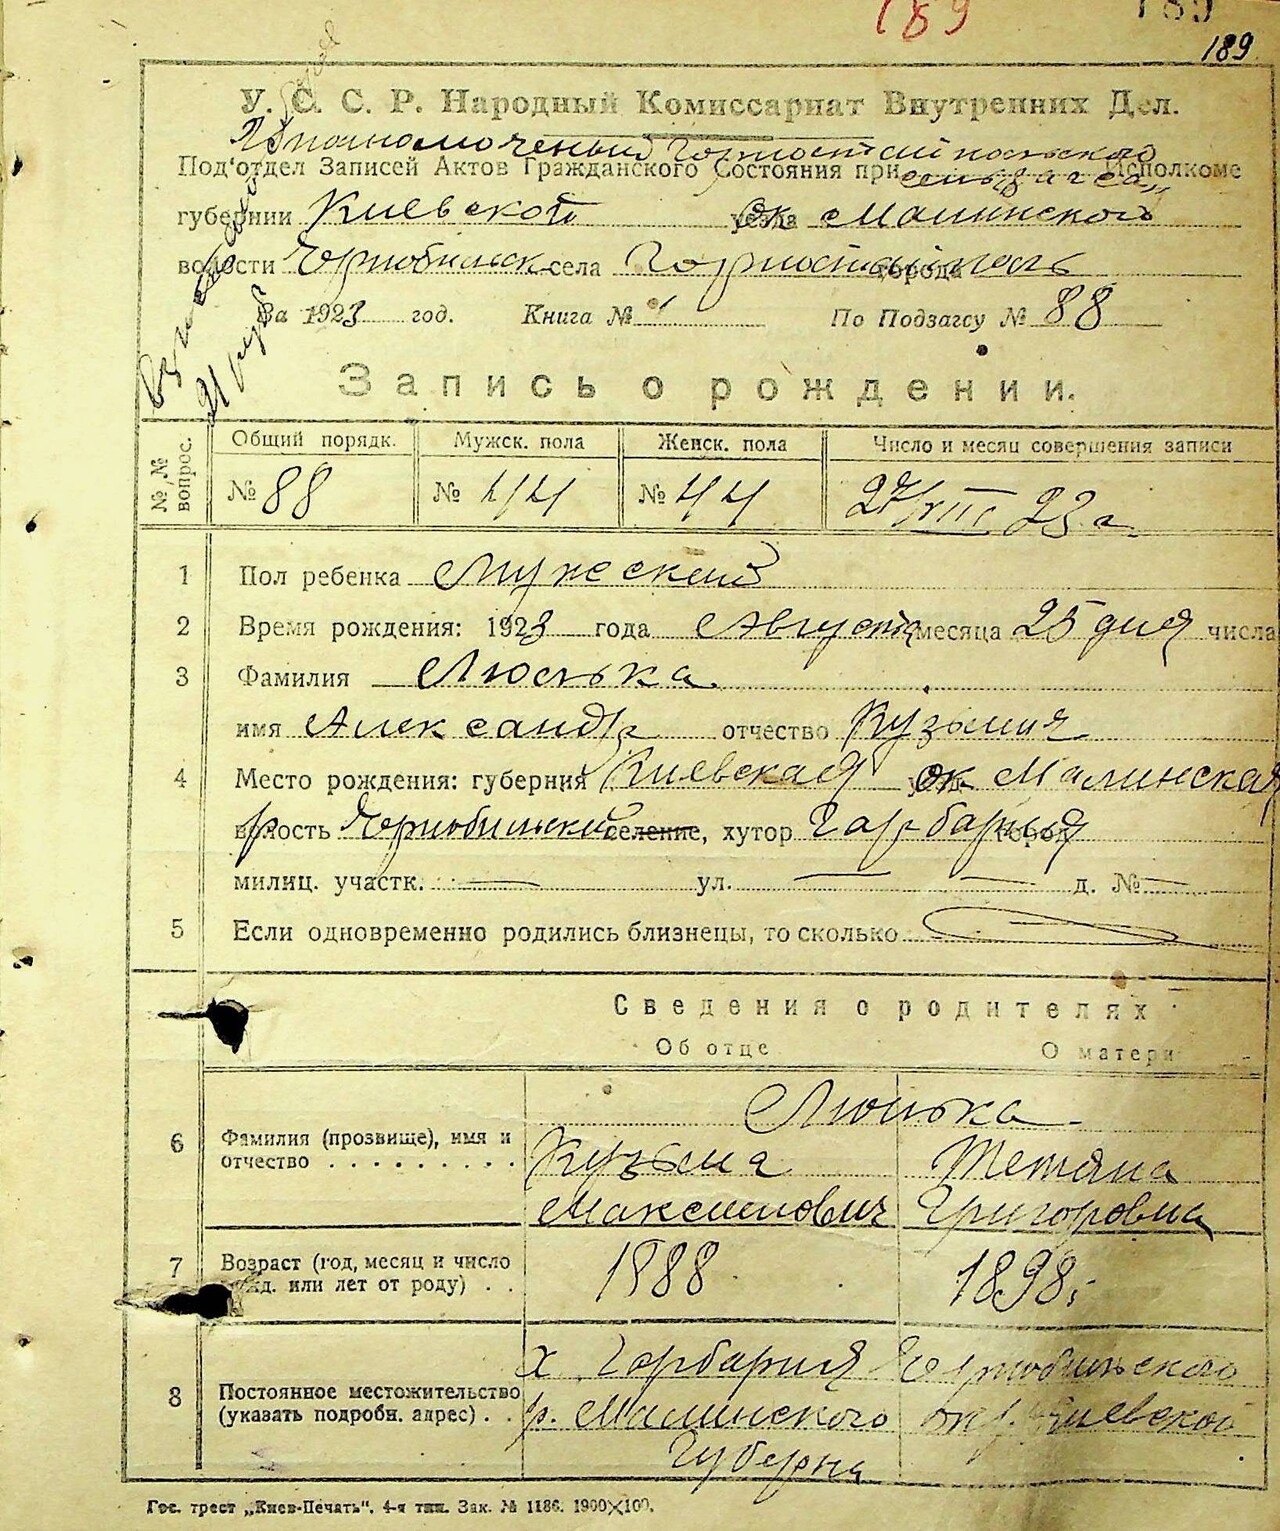 189
189
189
У. С. С. Р. Народный Комиссариат Внутренних Дел.
Уполномоченый Горностайпольского
Под'отдел Записей Актов Гражданского Состояния при Исполкоме
губернии Киевской ок Малинского
волости Чорнобильск села Горностайполь города
За 1923 год. Книга № 1 По Подзагсу № 88
Запись о рождении.
№№ вопрос.
Общий порядк. Мужск. пола Женск. пола Число и месяц совершения записи
№ 88 № 44 № 44 27/VIII 23 г.
1 Пол ребенка Мужеский
2 Время рождения: 1923 года Августа месяца 25 дня числа
3 Фамилия Люлька
имя Александр отчество Кузьмич
4 Место рождения: губерния Киевская ок Малинская
р волость Чорнобильский селение, хутор Гарбария город
милиц. участк. — ул. — — д. № —
5 Если одновременно родились близнецы, то сколько
Сведения о родителях
Об отце О матери
Люлька
6 Фамилия (прозвище), имя и отчество
Кузьма Тетяна
Максимович Григоровна
7 Возраст (год, месяц и число рожд. или лет от роду) . .
1888 1898.
8 Постоянное местожительство (указать подробн. адрес) . .
х. Гарбария Чорнобильского
р. Малинского окр. Киевской
Губерни
Гос. трест „Киев-Печать“. 4-я тип. Зак. № 1186. 1900×100.